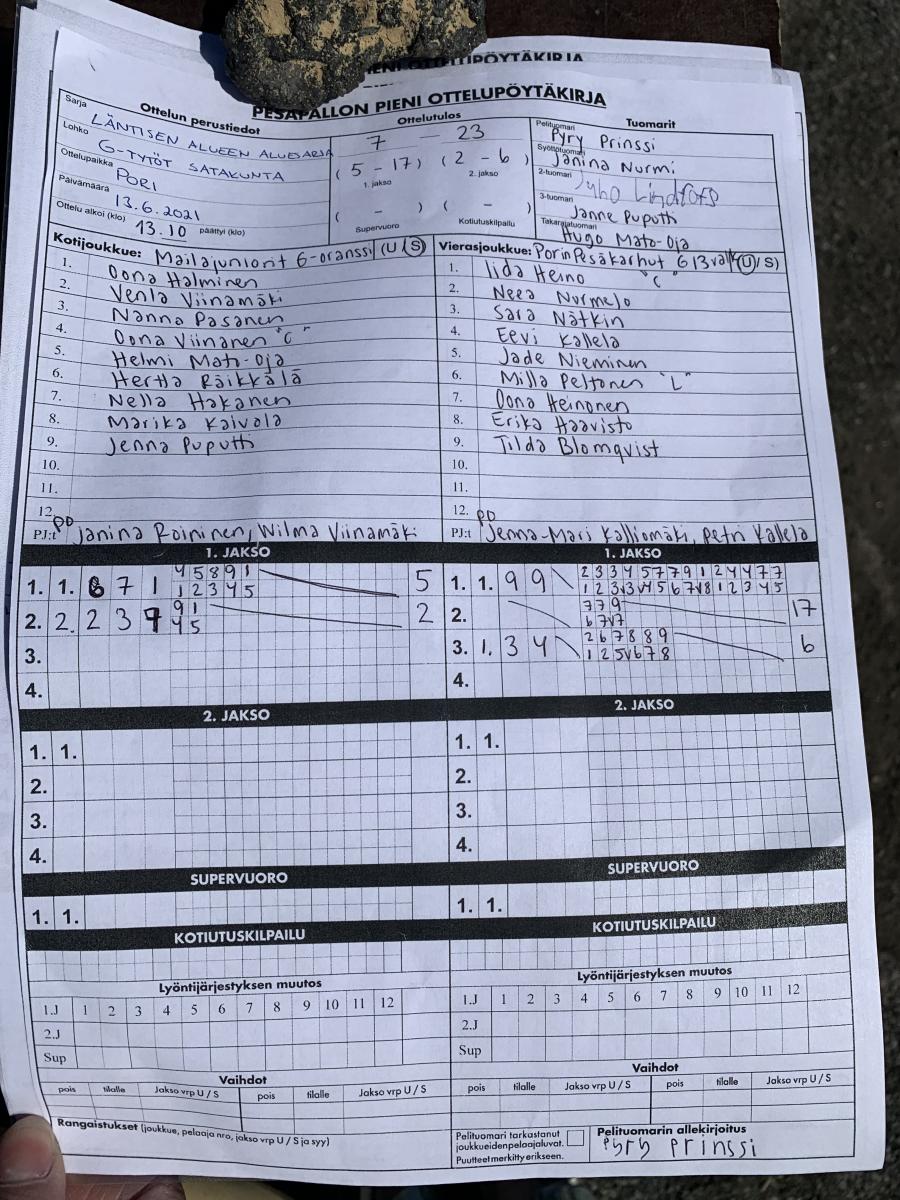 PESÄPALLON PIENI OTTELUPÖYTÄKIRJA
Ottelun perustiedot
Sarja
LÄNTISEN ALUEEN ALUESARJA
Lohko
G-TYTÖT SATAKUNTA
Ottelupaikka
PORI
Päivämäärä
13.6.2021
Ottelu alkoi (klo) 13.10 päättyi (klo)
Ottelutulos
7 - 23
( 5 - 17 ) ( 2 - 6 )
1. jakso 2. jakso
( - ) ( - )
Supervuoro Kotiutuskilpailu
Tuomarit
Pelituomari Pyry Prinssi
Syöttötuomari Janina Nurmi
2-tuomari Juho Lindfors
3-tuomari Janne Puputti
Takarajatuomari Hugo Mato-Oja
Kotijoukkue: Mailajuniorit G-oranssi (U / S)
1. Oona Halminen
2. Venla Viinamäki
3. Nanna Pasanen
4. Oona Viinanen "C"
5. Helmi Mato-Oja
6. Hertta Räikkälä
7. Nella Hakanen
8. Marika Kaivola
9. Jenna Puputti
10.
11.
12.
PJ:t PD Janina Roininen, Wilma Viinamäki
Vierasjoukkue: Porin Pesäkarhut G 13 valk (U / S)
1. Iida Heino "C"
2. Neea Nurmejo
3. Sara Nätkin
4. Eevi Kallela
5. Jade Nieminen
6. Milla Peltonen "L"
7. Oona Heinonen
8. Erika Haavisto
9. Tilda Blomqvist
10.
11.
12.
PJ:t PD Jenna-Mari Kalliomäki, Petri Kallela
1. JAKSO
1. 1. 8 7 1 4 5 8 9 1 5
1 2 3 4 5
2. 2. 2 3 9 9 1 2
4 5
3.
4.
1. JAKSO
1. 1. 9 9 2 3 3 4 5 7 7 9 1 2 4 4 7 7
1 2 3v3v4 5 6 7v8 1 2 3 4 5
2. 7 7 9 17
6 7v7
3. 1. 3 4 2 6 7 8 8 9 6
1 2 5v6 7 8
4.
2. JAKSO
1. 1.
2.
3.
4.
2. JAKSO
1. 1.
2.
3.
4.
SUPERVUORO
1. 1.
SUPERVUORO
1. 1.
KOTIUTUSKILPAILU
KOTIUTUSKILPAILU
Lyöntijärjestyksen muutos
1.J 1 2 3 4 5 6 7 8 9 10 11 12
2.J
Sup
Lyöntijärjestyksen muutos
1.J 1 2 3 4 5 6 7 8 9 10 11 12
2.J
Sup
Vaihdot
pois tilalle Jakso vrp U / S pois tilalle Jakso vrp U / S
Vaihdot
pois tilalle Jakso vrp U / S pois tilalle Jakso vrp U / S
Rangaistukset (joukkue, pelaaja nro, jakso vrp U / S ja syy)
Pelituomari tarkastanut
joukkueiden pelaajaluvat.
Puutteet merkitty erikseen.
Pelituomarin allekirjoitus
Pyry Prinssi